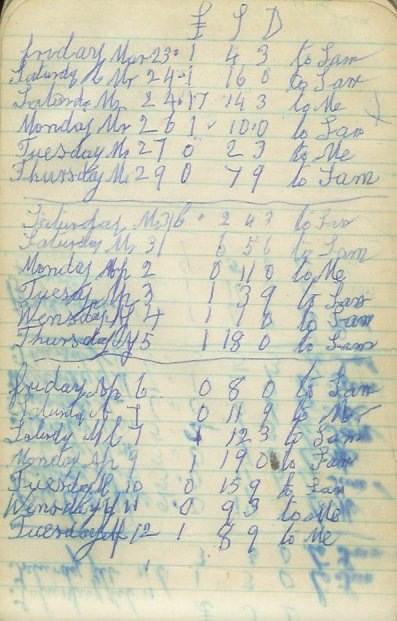 £ S D
Friday Mar 23 · 1 4 3 to Sam
Saturdy Mr 24 · 1 16 0 to Sam
Saturdy Mr 24 · 17 14 3 to Me
Monday Mr 26 1 10 · 0 to Sam
Tuesday Mr 27 0 2 3 to Me
Thursday Mr 29 0 7 9 to Sam
Saturday M 31 2 4 3 to Sam
Saturday Mr 31 6 5 6 to Sam
Monday Ap 2 0 11 0 to Me
Tuesdy Ap 3 1 3 9 to Sam
Wensday Ap 4 1 1 0 to Sam
Thursday Ap 5 1 18 0 to Sam
Friday Ap 6 0 8 0 to Sam
Saturdy A 7 0 11 9 to Me
Satudy Ap 7 1 12 3 to Sam
Monday Ap 9 1 19 0 to Sam
Tuesday Ap 10 0 15 9 to Sam
Wensday Ap 11 0 9 3 to Me
Tuesday Ap 12 1 8 9 to Me